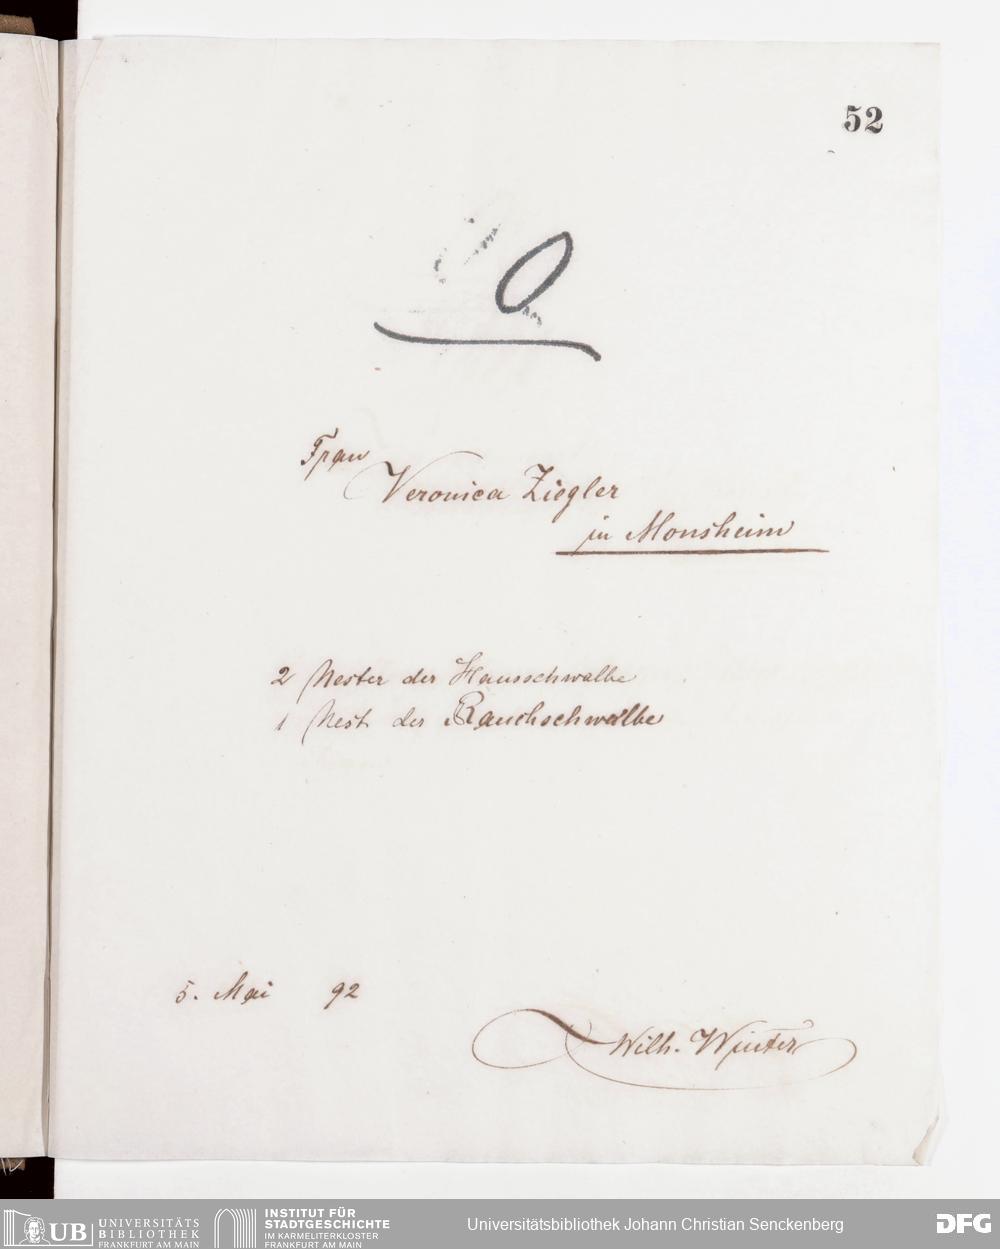 52
Frau
Veronica Ziegler
in Monsheim
2 Nester der Hausschwalbe
1 Nest der Rauchschwalbe
5. Mai 92
Wilh. Winter
UB UNIVERSITÄTS
BIBLIOTHEK
FRANKFURT AM MAIN
INSTITUT FÜR
STADTGESCHICHTE
IM KARMELITERKLOSTER
FRANKFURT AM MAIN
Universitätsbibliothek Johann Christian Senckenberg
DFG